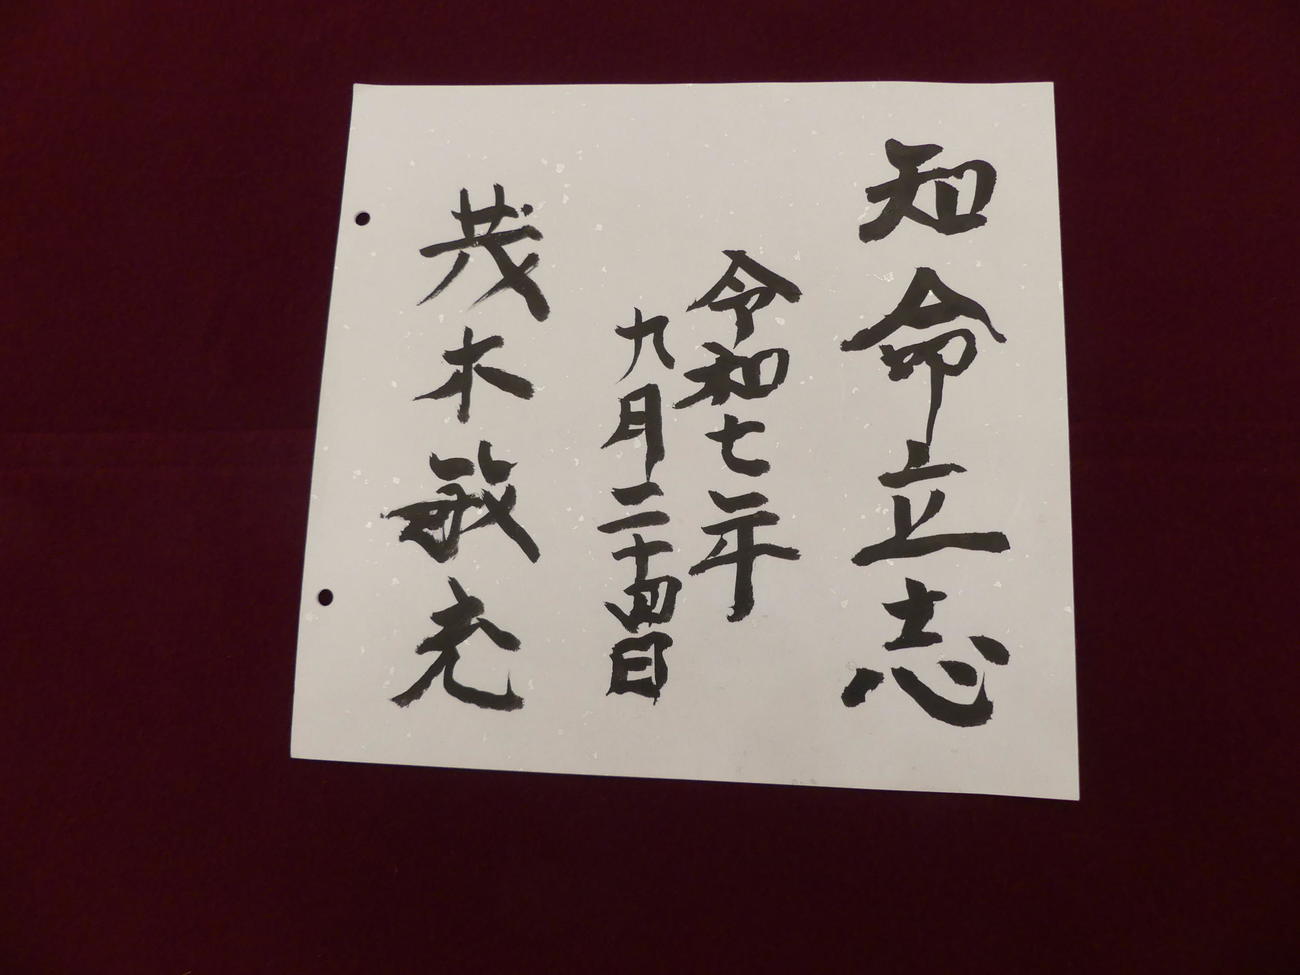 知命立志
令和七年
九月二十四日
茂木敏充